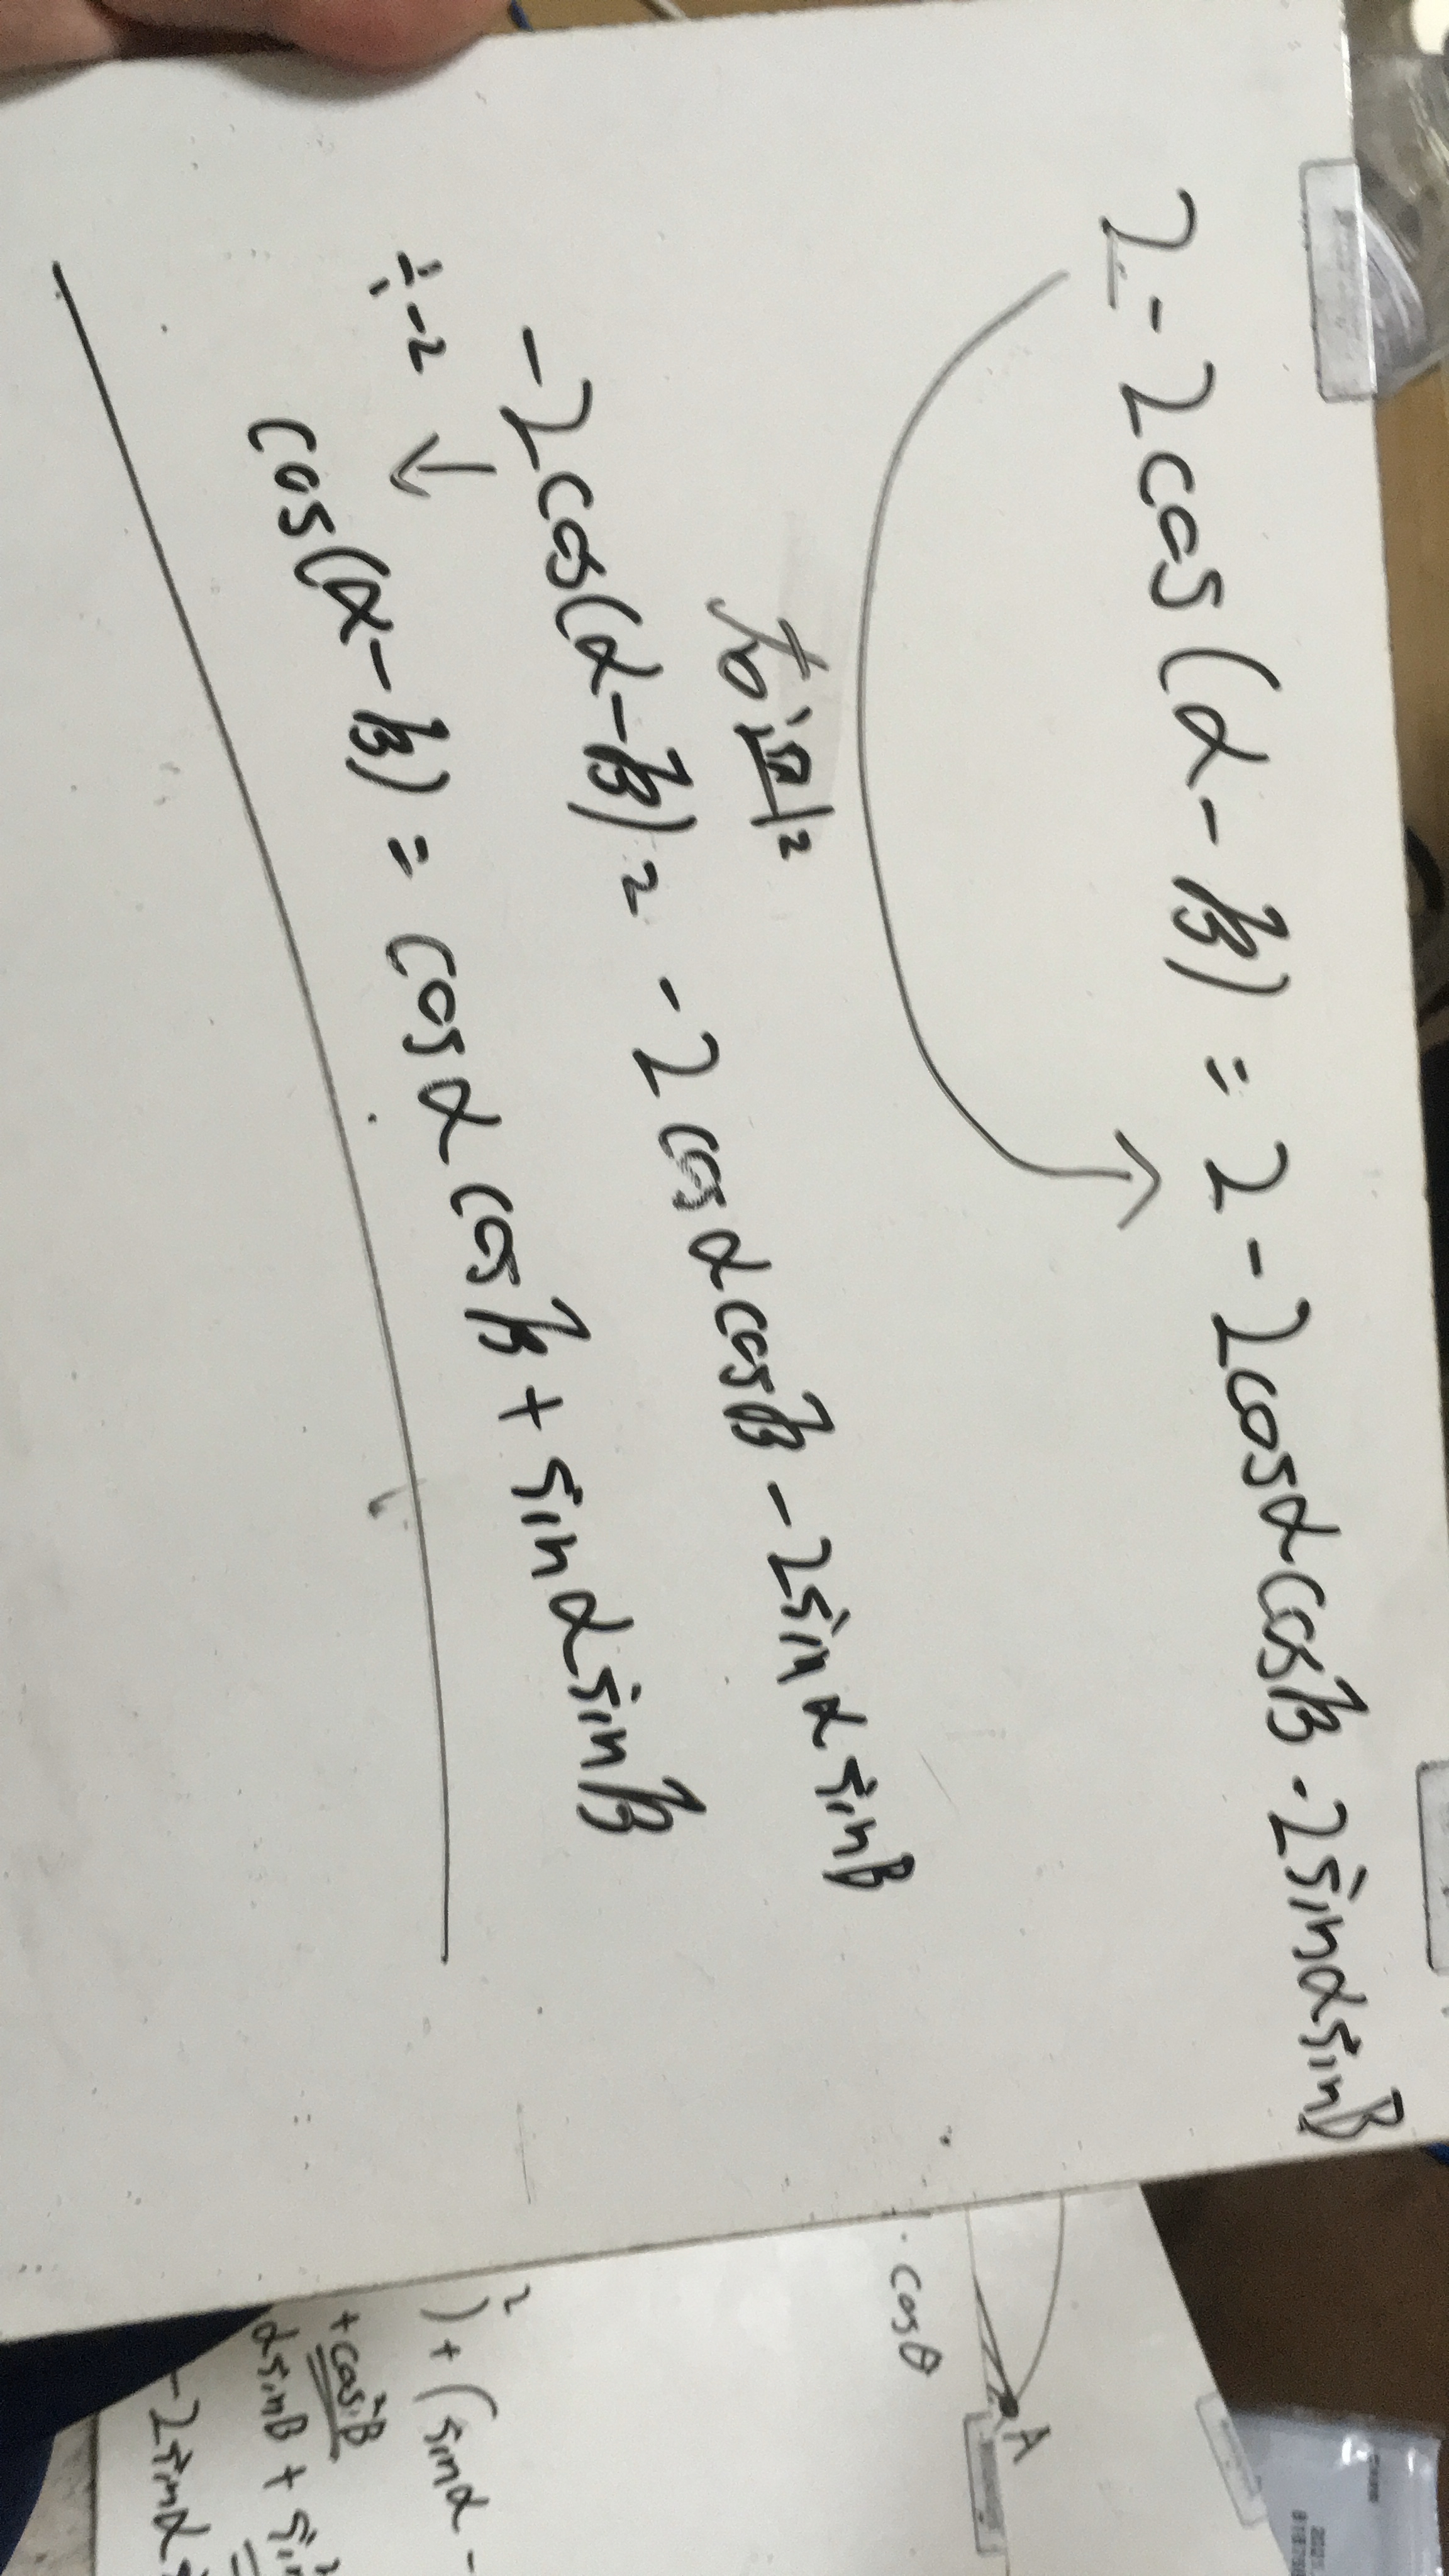 2 - 2cos(α - β) = 2 - 2cosαcosβ - 2sinαsinβ
-2cos(α - β) = -2cosαcosβ - 2sinαsinβ
÷ -2 ↓
cos(α - β) = cosαcosβ + sinαsinβ
· cosθ
A
)² + (sinα -
+ cos²β
αsinβ + sin²
- 2sinα